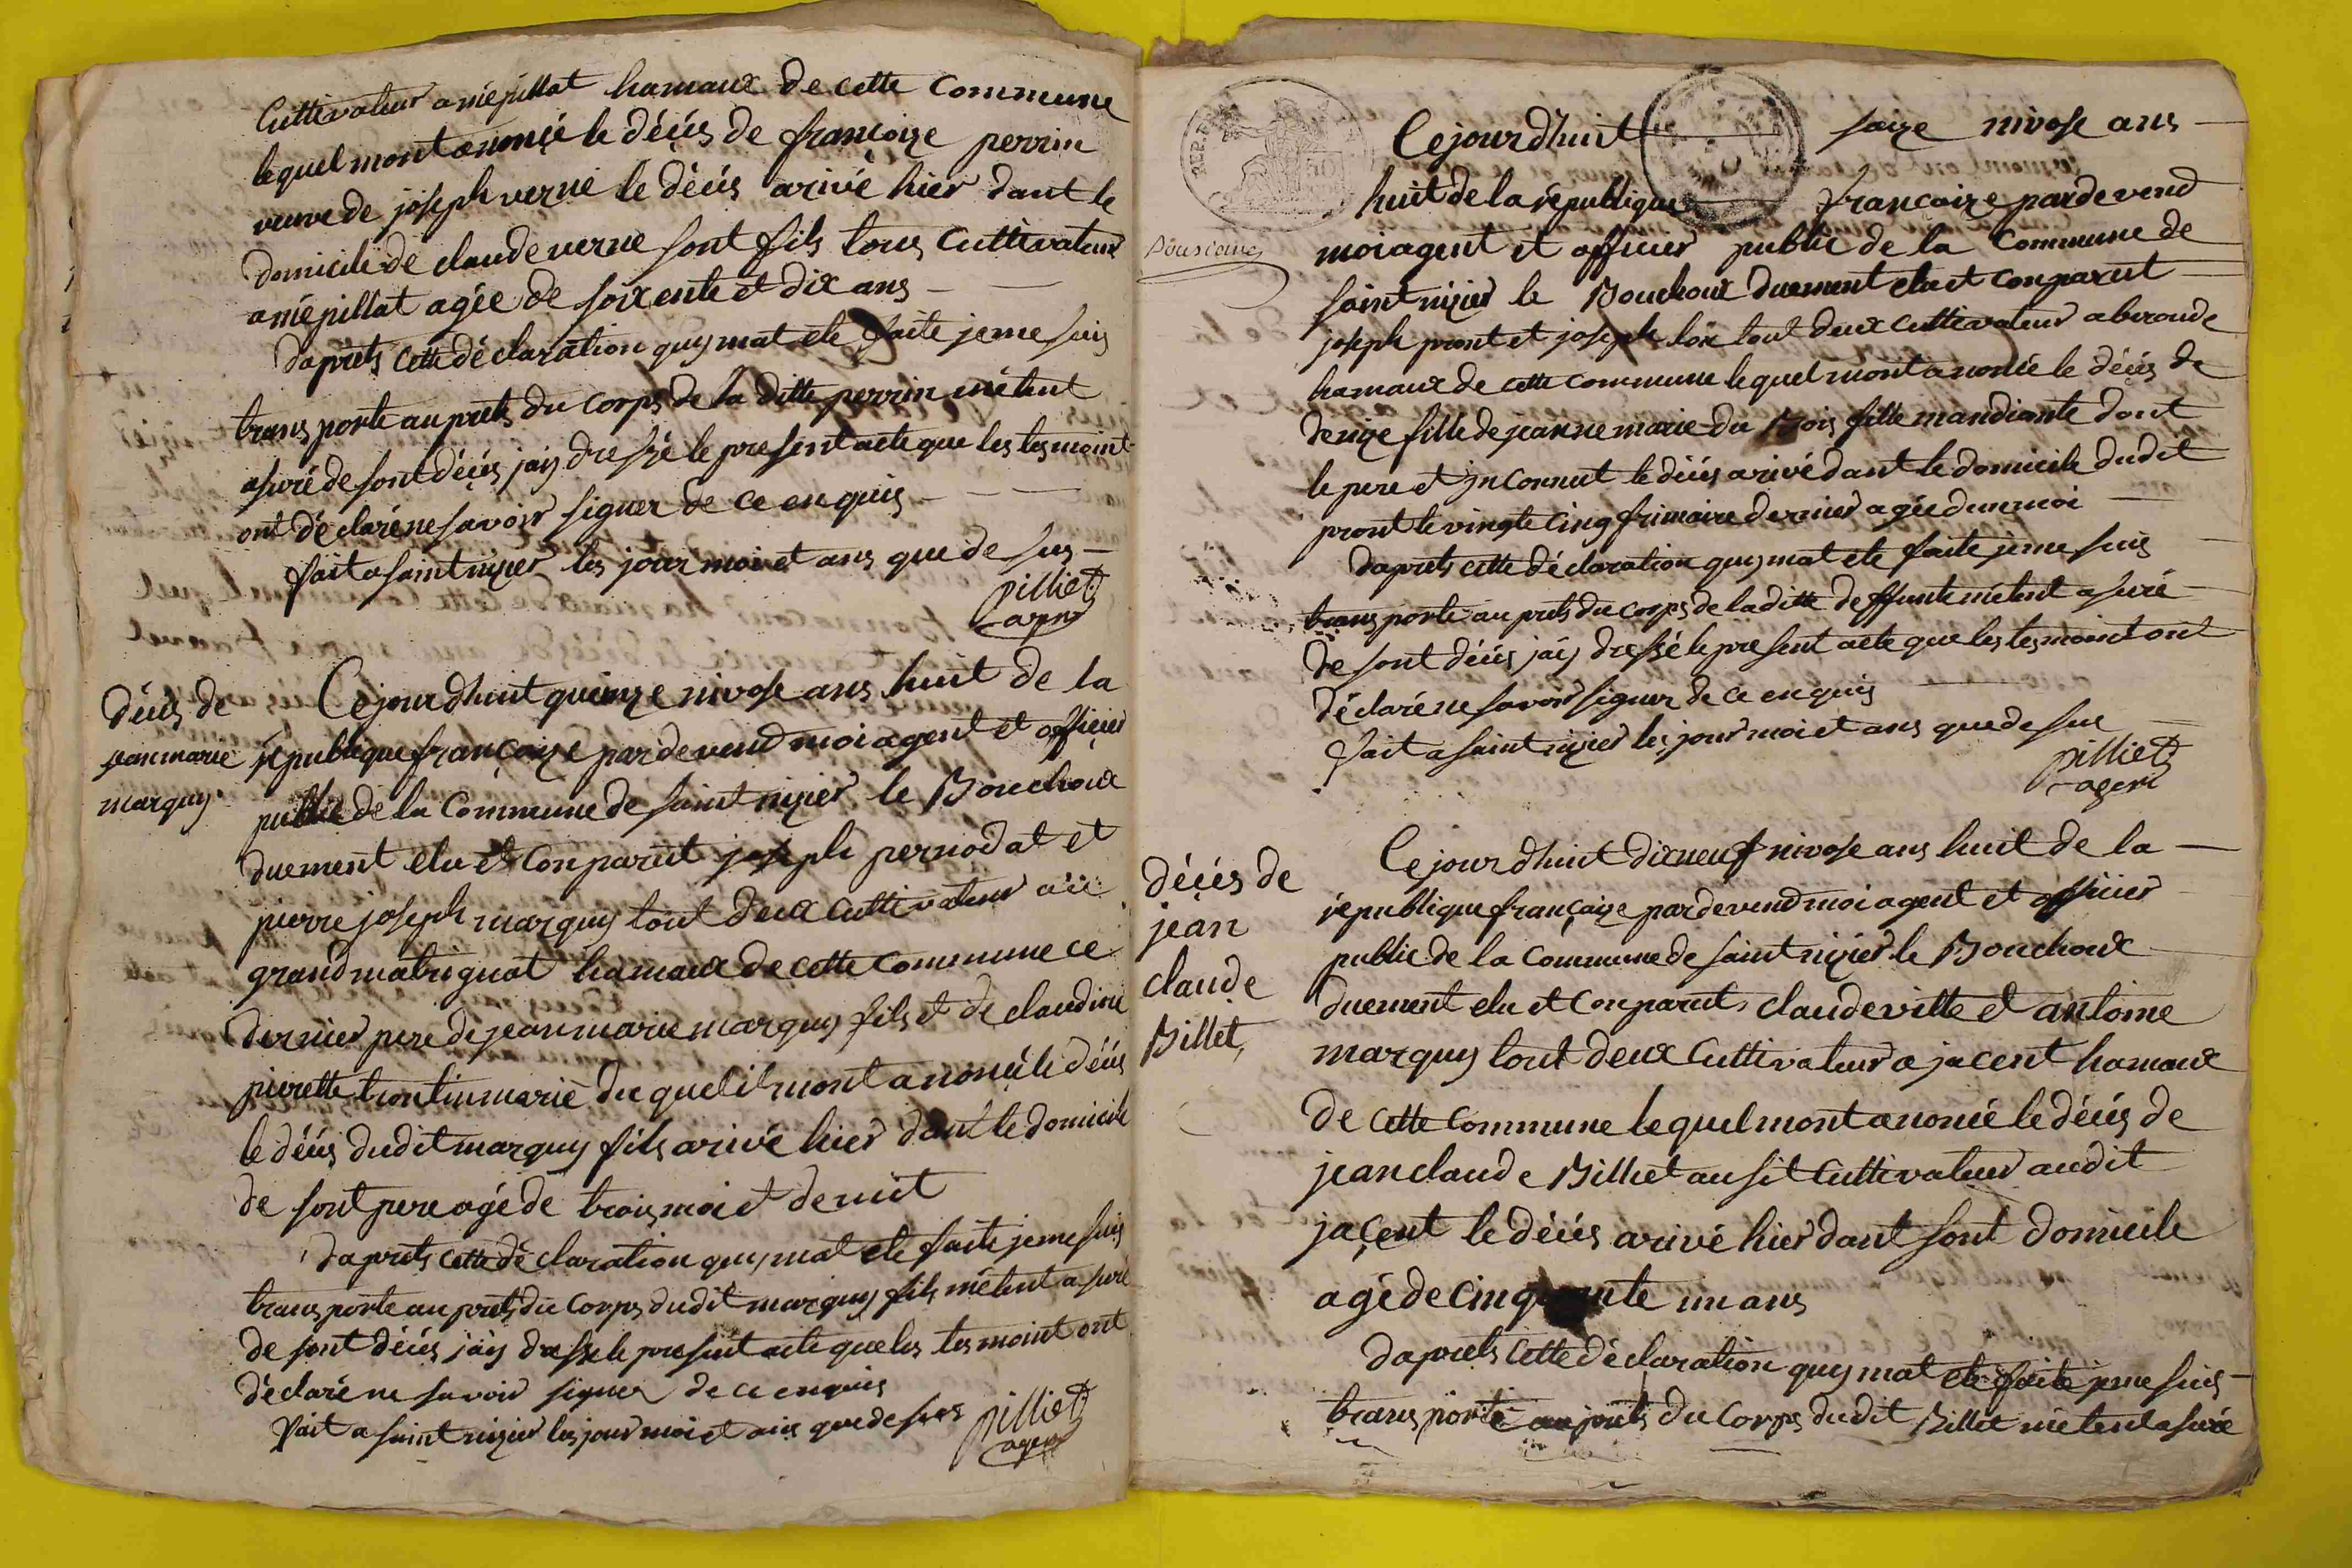 Cuttivateur a mépillat hamaux de cette Commune
lequel mont anoncé le décés de francoize perrin
veuve de joseph verne le décés arivé hier dant le
domicile de claude verne sont fils tous Cuttivateur
a mépillat agée de soixente et dix ans
daprets cette déclaration quy mat ete faite je me suis
trans porte au prets du Corps de la ditte perrin métent
asuré de sont décés jaÿ dressé le present acte que les tesmoint
ont déclaré ne savoir signer de ce enquis
fait a saint nizier les jour moi et ans que de sus
pilliet
agent
décés de
jean marie
marquy
Cejourdhuit quinze nivose ans huit de la
republique françaize pardevend moi agent et officier
public de la Commune de saint nizier le Bouchoux
duement elu et Conparut joseph pernodat et
pierre joseph marquy tout deux Cuttivateur au
grand matrignat hamaux de cette Commune ce
dernier pere de jean marie marquy fils et de claudine
pierrette trontin marié du quel il mont anoncé le décés
le décés dudit marquy fils arivé hier dant le domicile
de sont pere agé de trois moi et demit
daprets cette déclaration quy mat ete faite je me suis
trans porte au prets du Corps dudit marquy fils métent asuré
de sont décés jaÿ dressé le present acte que les tesmoint ont
déclaré ne savoir signer de ce enquis
fait a saint nizier les jour moi et ans que de sus
pilliet
agent
REP.
50
Cejourdhuit saize nivose ans
huit de la republique francaize pardevend
moi agent et officier public de la Commune de
saint nizier le Bouchoux duement elu et Conparut
joseph pront et joseph loix tout deux Cuttivateur a beroude
hamaux de cette Commune lequel mont anoncé le décés de
denize fille de jeanne marie du Bois fille mandiante dont
le pere et jnConnut le décés arivé dant le domicile dudit
pront le vingte Cinq frimaire dernier agée dun moi
daprets cette déclaration quy mat ete faite je me suis
trans porte au prets du Corps de la ditte deffunte métent asuré
de sont décés jaÿ dressé le present acte que les tesmoint ont
déclaré ne savoir signer de ce enquis
fait a saint nizier les jour moi et ans que de sus
pilliet
agent
décés de
jean
claude
Billet
Cejourdhuit dixneuf nivose ans huit de la
republique françaize pardevend moi agent et officier
public de la Commune de saint nizier le Bouchoux
duement elu et Conparut claude vitte et antoine
marquy tout deux Cuttivateur a jacent hamaux
de cette Commune lequel mont anoncé le décés de
jean claude Billiet ausit Cuttivateur audit
jaçent le décés arivé hier dant sont domicile
agé de Cinquante un ans
daprets Cette déclaration quy mat ete faite je me suis
trans porté au prets du Corps dudit Billet métent asuré